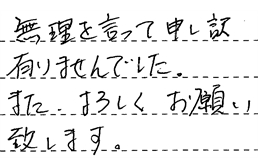 無理を言って申し訳
有りませんでした。
また、よろしく お願い
致します。